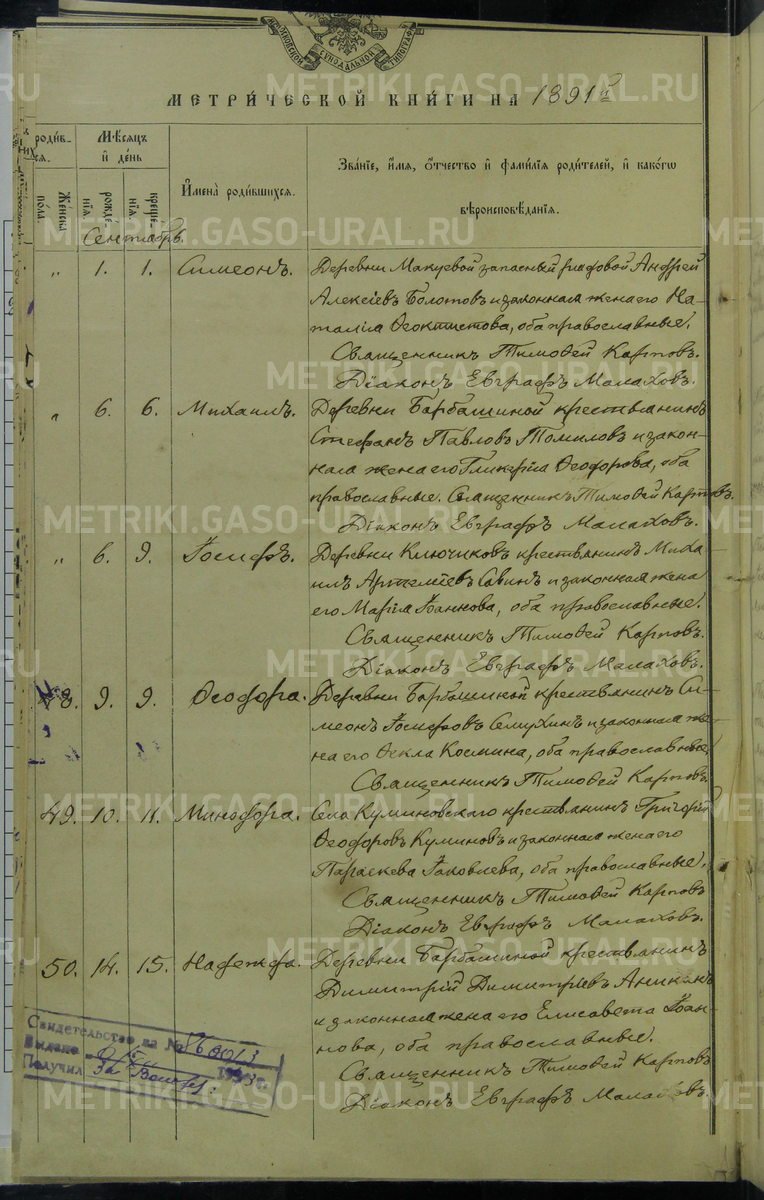 МЕТРИЧЕСКОЙ КНИГИ НА 1891 й
родив-
ся.
Мѣсяцъ
и день
Имена родившихся.
Званіе, имя, отчество и фамилія родителей, и какого
вѣроисповѣданія.
Женска
пола.
рожде-
нія.
креще-
нія.
Сентябрь.
„ 1. 1. Симеонъ. Деревни Макуевой запасный рядовой Андрей
Алексіевъ Болотовъ и законная жена его На-
талія Ѳеоктистова, оба православные.
Священникъ Тимоѳей Карповъ.
Діаконъ Евграфъ Малаховъ.
„ 6. 6. Михаилъ. Деревни Барбашиной крестьянинъ
Стефанъ Павловъ Томиловъ и закон-
ная жена его Гликерія Ѳеодорова, оба
православные. Священникъ Тимоѳей Карповъ.
Діаконъ Евграфъ Малаховъ.
„ 6. 9. Іосифъ. Деревни Ключиковъ крестьянинъ Миха-
илъ Артеміевъ Савинъ и законная жена
его Марія Іоаннова, оба православные.
Священникъ Тимоѳей Карповъ.
Діаконъ Евграфъ Малаховъ.
48. 9. 9. Ѳеодора. Деревни Барбашиной крестьянинъ Си-
меонъ Іосифовъ Семухинъ и законная же-
на его Ѳекла Космина, оба православные.
Священникъ Тимоѳей Карповъ.
49. 10. 11. Минодора. Села Куминовскаго крестьянинъ Григорій
Ѳеодоровъ Куминовъ и законная жена его
Параскева Іаковлева, оба православные.
Священникъ Тимоѳей Карповъ
Діаконъ Евграфъ Малаховъ.
50. 14. 15. Надежда. Деревни Барбашиной крестьянинъ
Димитрій Димитріевъ Аникинъ
и законная жена его Елисавета Іоан-
нова, оба православные.
Священникъ Тимоѳей Карповъ
Діаконъ Евграфъ Малаховъ.
Свидетельство за №
Выдано
Получил
METRIKI.GASO-URAL.RU